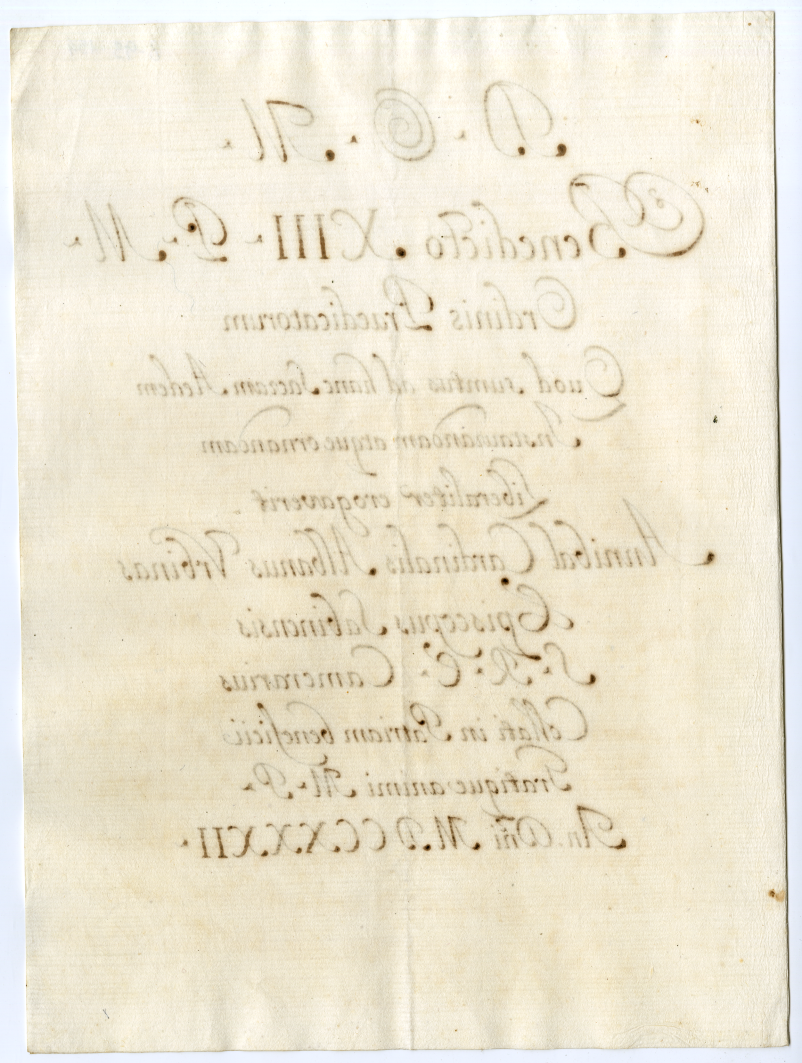 D · O · M ·
Benedicto XIII · P · M ·
Ordinis Praedicatorum
Quod sumtus ad hanc Sacram Aedem
Instaurandam atque ornandam
Liberaliter erogaverit
Annibal Cardinalis Albanus Vrbinas
Episcopus Sabinensis
S · R · E · Camerarius
Collati in Patriam beneficii
Gratique animi M · P ·
An. Dñi MDCCXXXII ·